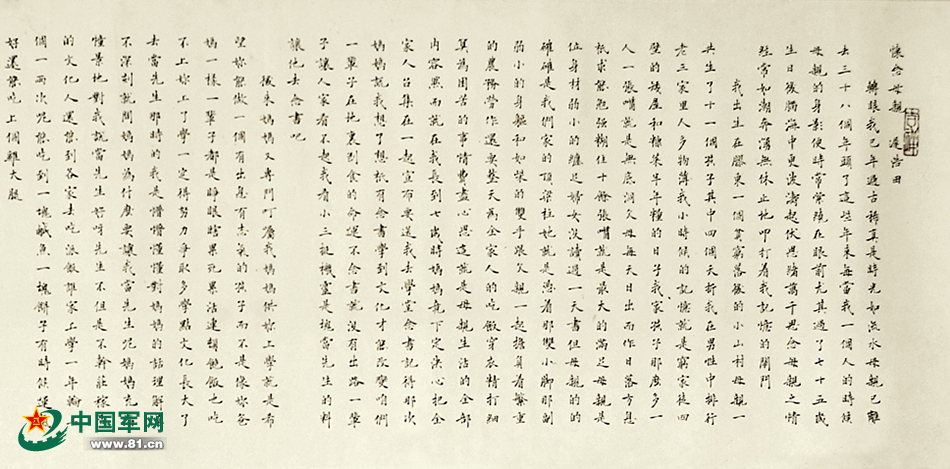 懷念母親 遲浩田
轉眼我已年過古稀真是時光如流水母親已離
去三十八個年頭了這些年來每當我一個人的時候
母親的身影便時常繞在眼前尤其過了七十五歲
生日後腦海中更波濤起伏思緒萬千思念母親之情
經常如潮奔湧無休止地叩打着我記憶的閘門
我出生在膠東一個貧窮落後的小山村母親
共生了十一個孩子其中四個夭折我在男性中排行
老三家里人多物薄我小時候的記憶就是窮家後四
壁的矮屋和糠菜半年糧的日子我家孩子那麼多一
人一張嘴就是無底洞父母每天日出而作日落方息
祇求能勉強糊住十幾張嘴就是最大的滿足母親是
位身材弱小的纏足婦女沒讀過一天書但母親的的
確確是我們家的頂梁柱她就是憑着那雙小脚那副
弱小的身軀和如柴的雙手跟父親一起擔負着繁重
的農務勞作還要整天為全家人的吃飯穿衣精打細
算為困苦的事情費盡心思這就是母親生活的全部
内容然而就在我長到七歲時媽媽竟下定決心把全
家人召集在一起宣布要送我去學堂念書記得那次
媽媽說我想了想祇有念書學到文化才能改變咱們
一輩子在地裏刨食的命運不念書就沒有出路一輩
子讓人家看不起我看小三挺機靈是塊當先生的料
讓他去念書吧
後來媽媽又專門叮囑我媽媽供妳上學就是希
望妳能做一個有出息有志氣的孩子而不是像妳爸
媽一樣一輩子都是睜眼瞎累死累活連頓飽飯也吃
不上妳上了學一定得努力爭取多學點文化長大了
去當先生那時的我是懵懵懂懂對媽媽的話理解
不深刻就問媽媽為什麼要讓我當先生呢媽媽充
憧景地對我說當先生好呀先生不但是不幹莊稼
的文化人還能到各家去吃派飯誰家上學一年輪
個一兩次呢能吃到一塊鹹魚一塊餅子有時候運
好還能吃上個雞大腿
中国军网
www.81.cn